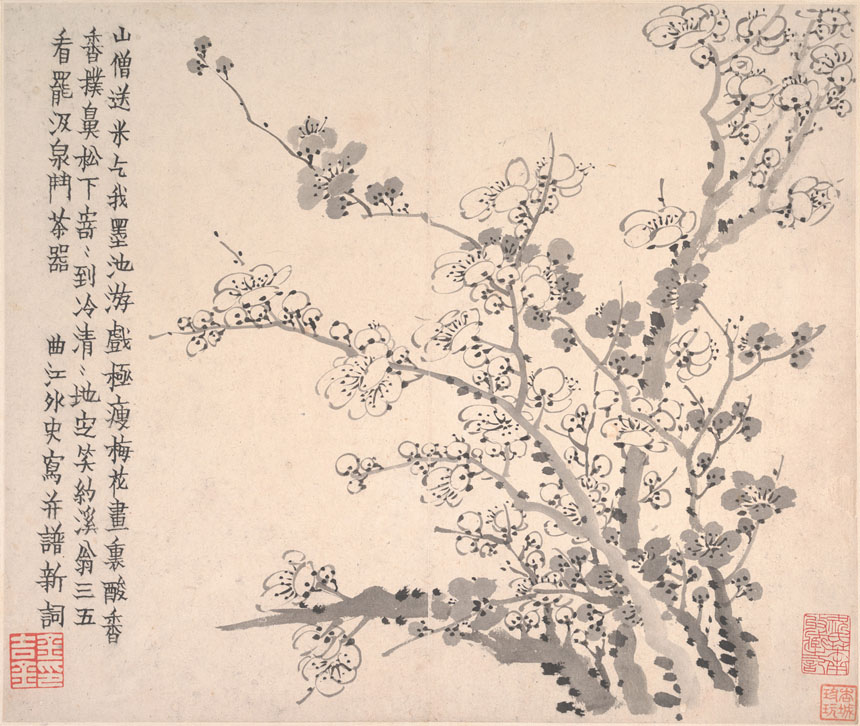 山僧送米乞我墨池游戲極瘦梅花畫裏酸香
香撲鼻松下寄〻到冷清〻地定笑約溪翁三五
看罷汲泉鬥茶器 曲江外史寫并譜新詞
金印吉金